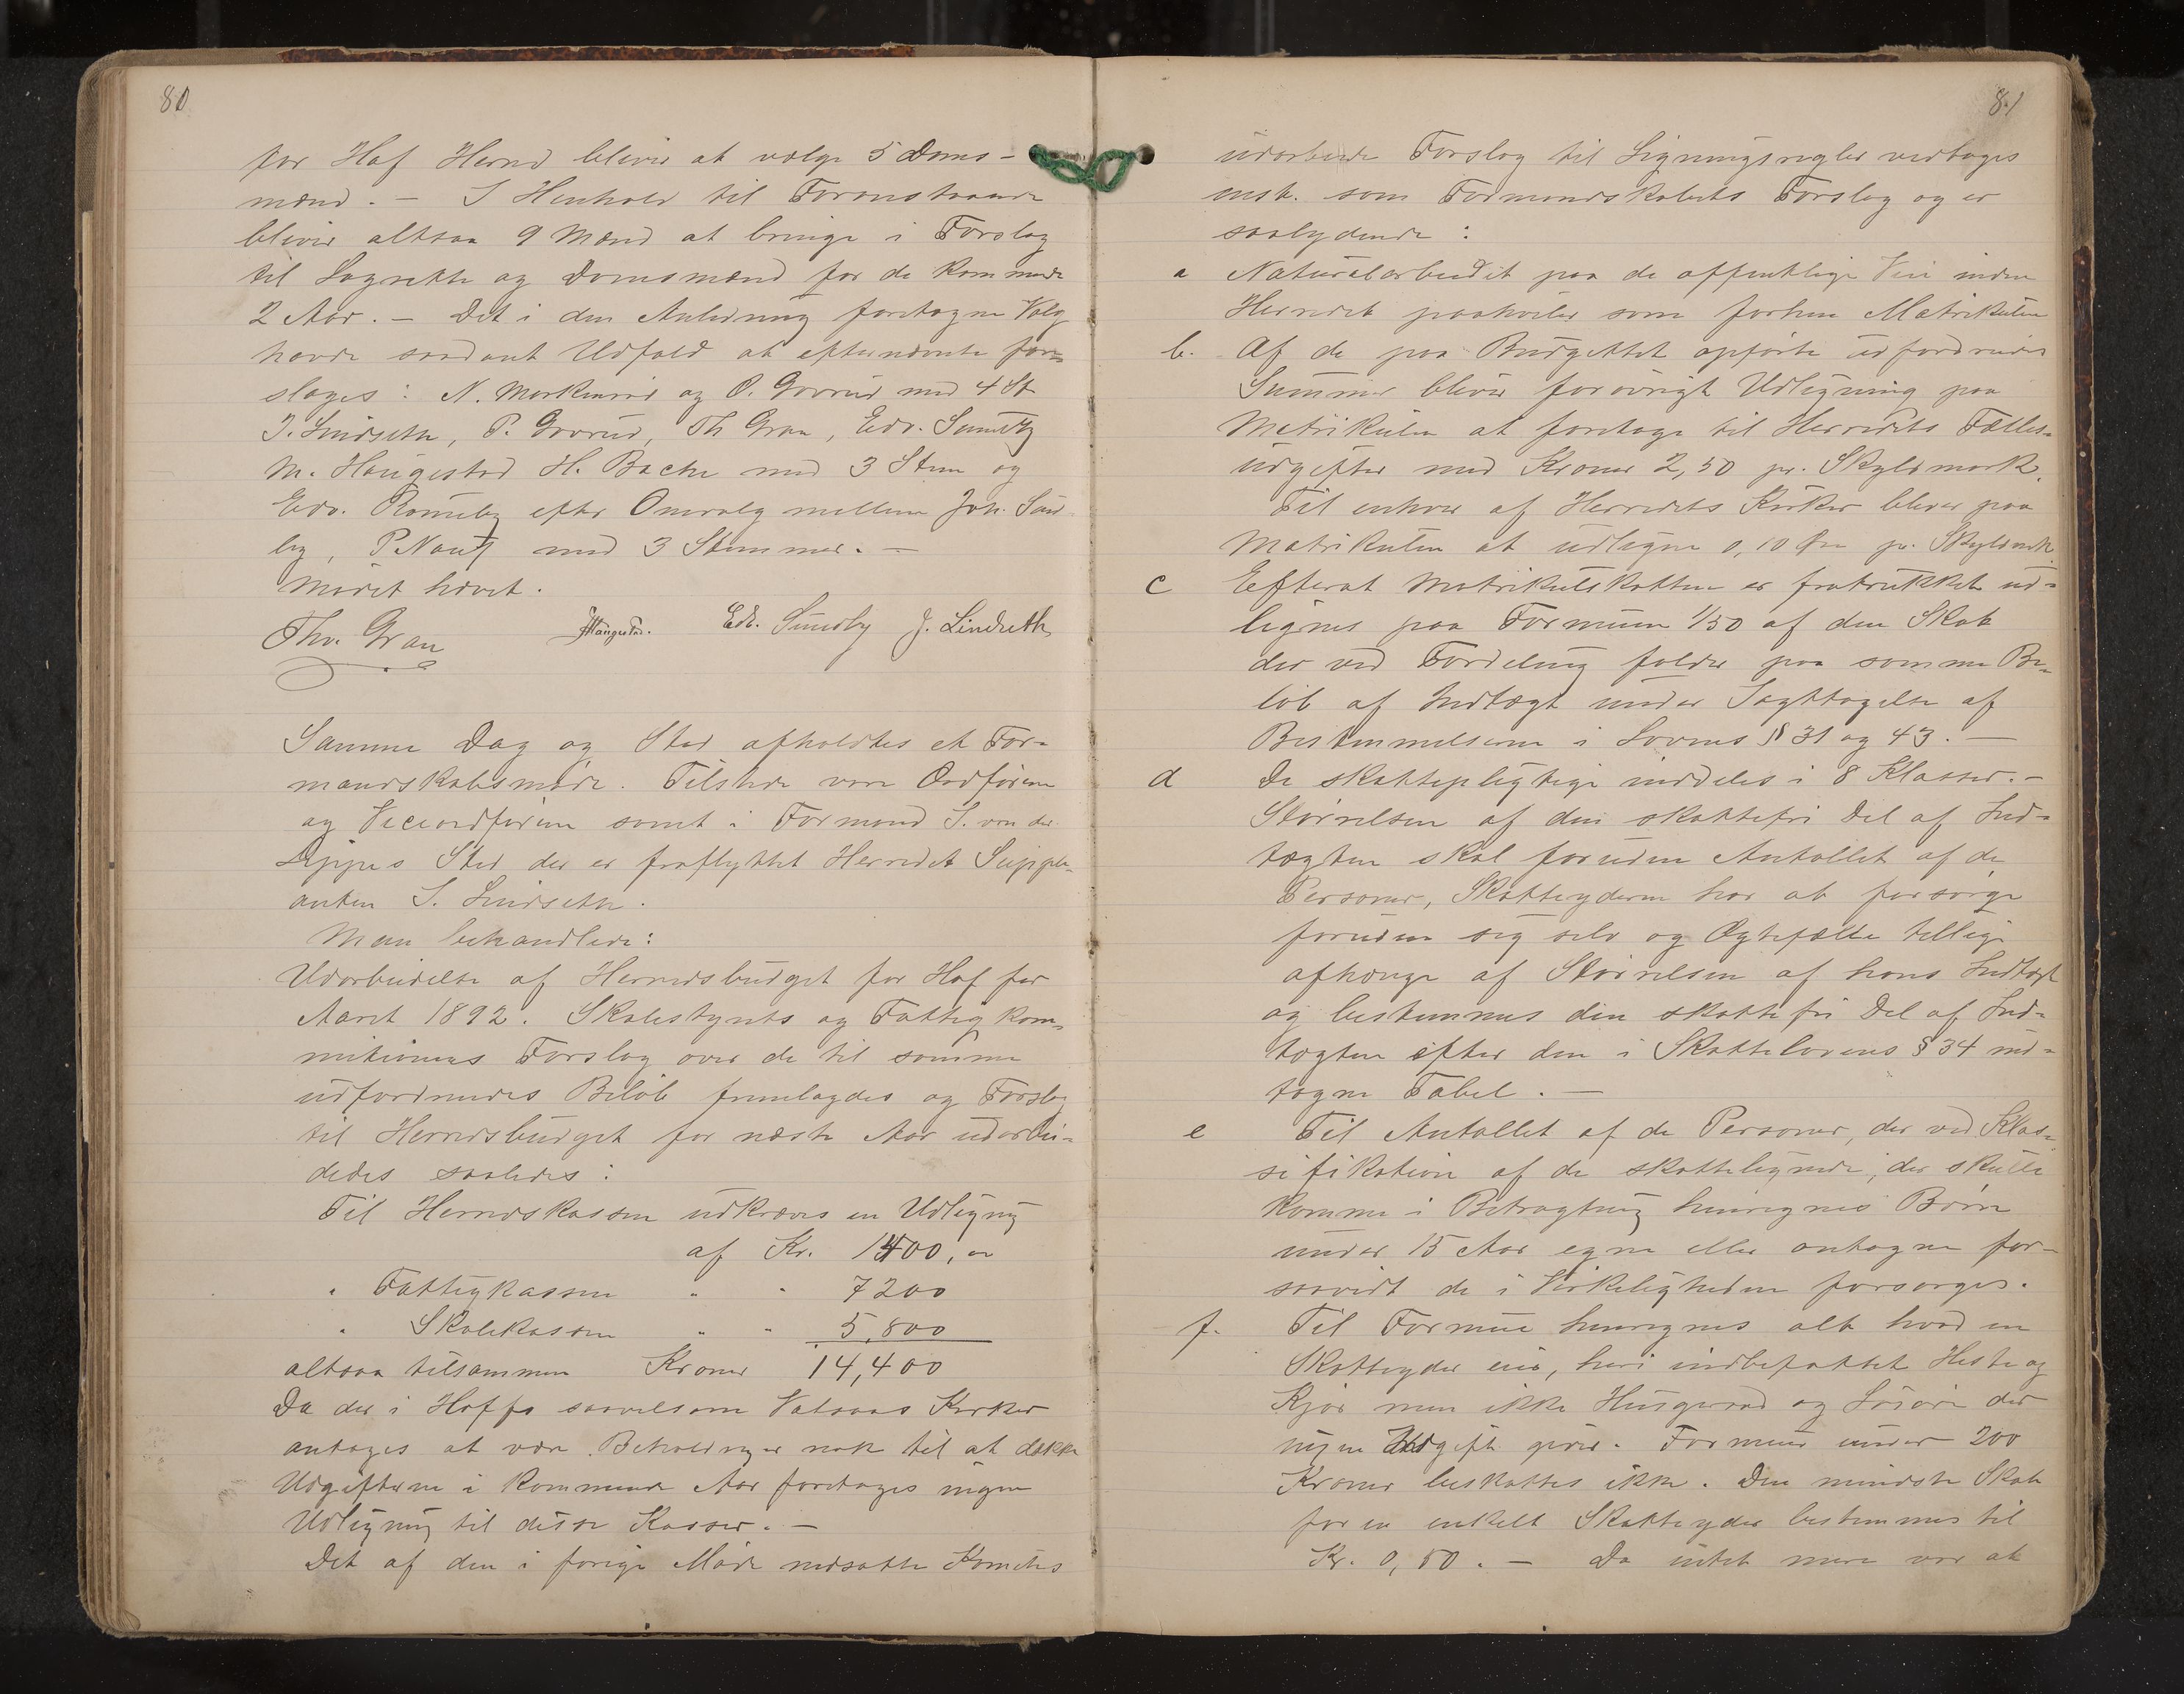 80
for Hof Herred bliver at vælge 5 Doms-
mænd. - I Henhold til Foranstaaende
bliver altsaa 9 Mænd at bringe i Forslag
til Lagrette og Domsmænd for de kommende
2 Aar. - Det i den Anledning foretagne Valg
havde saadant Udfald at efternævnte fore-
slages: N. Markerud og O. Grorud med 4 St
J. Lindseth, P. Grorud, Th Gran, Edv. Sundby
M. Haugestad H. Bache med 3 Stem og
Edv. Romeby efter Omvalg mellem Joh. Sand
by, P Nauf med 3 Stemmer. -
Mødet hævet.
Thv. Gran Haugestad. Edv. Sundby J. Lindseth
Samme Dag og Sted afholdtes et For-
mandskabsmøde. Tilstede vare Ordføreren
og Viceordføreren samt i Formand S. von der
Lippes Sted der er fraflyttet Herredet Supple-
anten J. Lindseth.
Man behandlede:
Udarbeidelse af Herredsbudget for Hof for
Aaret 1892. Skolestyrets og Fattigkom-
missionens Forslag over de til samme
udfordrendes Beløb fremlagdes og Forslag
til Herredsbudget for næste Aar udarbei-
dedes saaledes:
Til Herredskassen udkræves en Udligning
af Kr. 1400, "
" Fattigkassen " " 7200
" Skolekassen " " 5,800
altsaa tilsammen Kroner 14,400
Da der i Hoffs saavelsom Vatsaas Kirker
antages at være Beholdninger nok til at dække
Udgifterne i kommende Aar foretages ingen
Udligning til disse Kasser. -
Det af den i forrige Møde nedsatte Komites
81
udarbeide Forslag til Ligningsregler vedtoges
enst. som Formandskabets Forslag og er
saalydende:
a Naturalarbeidet paa de offentlige Veie inden
Herredet paahviler som forhen Matrikulen
b. Af de paa Budgettet opførte udfordrende
Summer bliver forøvrigt Udligning paa
Matrikulen at foretage til Herredets Fælles-
udgifter med Kroner 2,50 pr. Skyldmark.
Til enhver af Herredets Kirker bliver paa
Matrikulen at udligne 0,10 Øre pr. Skyldmrk
c Efterat Matrikulskatten er fratrukket ud-
lignes paa Formuen 1/50 af den Skat
der ved Fordeling falder paa samme Be-
løb af Indtægt under Iagttagelse af
Bestemmelserne i Lovens §§ 31 og 43. -
d De skattepligtige inddeles i 8 Klasser. -
Størrelsen af den skattefri Del af Ind-
tægten skal foruden Antallet af de
Personer, Skatteyderen har at forsørge
foruden sig selv og Ægtefælle tillige
afhænge af Størrelsen af hans Indtægt
og bestemmes den skattefri Del af Ind-
tægten efter den i Skattelovens § 34 ind-
tagne Tabel. -
e Til Antallet af de Personer, der ved Klas-
sifikation af de skatteligende, der skulle
komme i Betragtning henregnes Børn
under 15 Aar egne eller antagne for-
saavidt de i Virkeligheden forsørges.
f. Til Formue henregnes alt hvad en
Skatteyder eier, heri indbefattet Heste og
Kjør men ikke Husgeraad og Løsøre der
ingen Udgift giver. Formuer under 200
Kroner beskattes ikke. Den mindste Skat
for en enkelt Skatteyder bestemmes til
Kr. 0,80. - Da intet mere var at